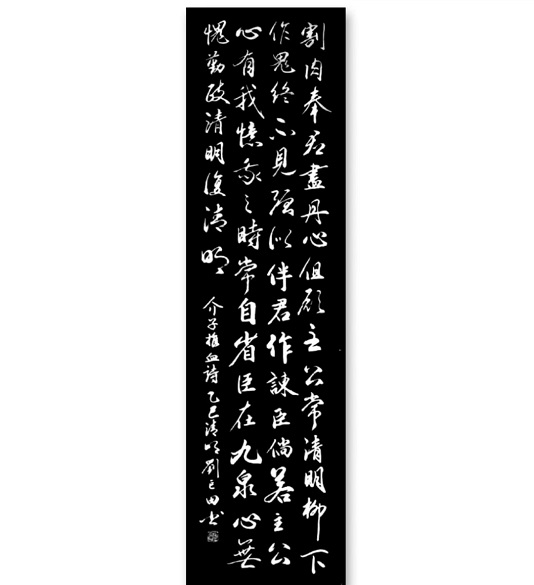 割肉奉君盡丹心但願主公常清明柳下
作鬼終不見強似伴君作諫臣倘若主公
心有我憶我之時常自省臣在九泉心無
愧勤政清明復清明
介子推血詩乙巳清明劉田书